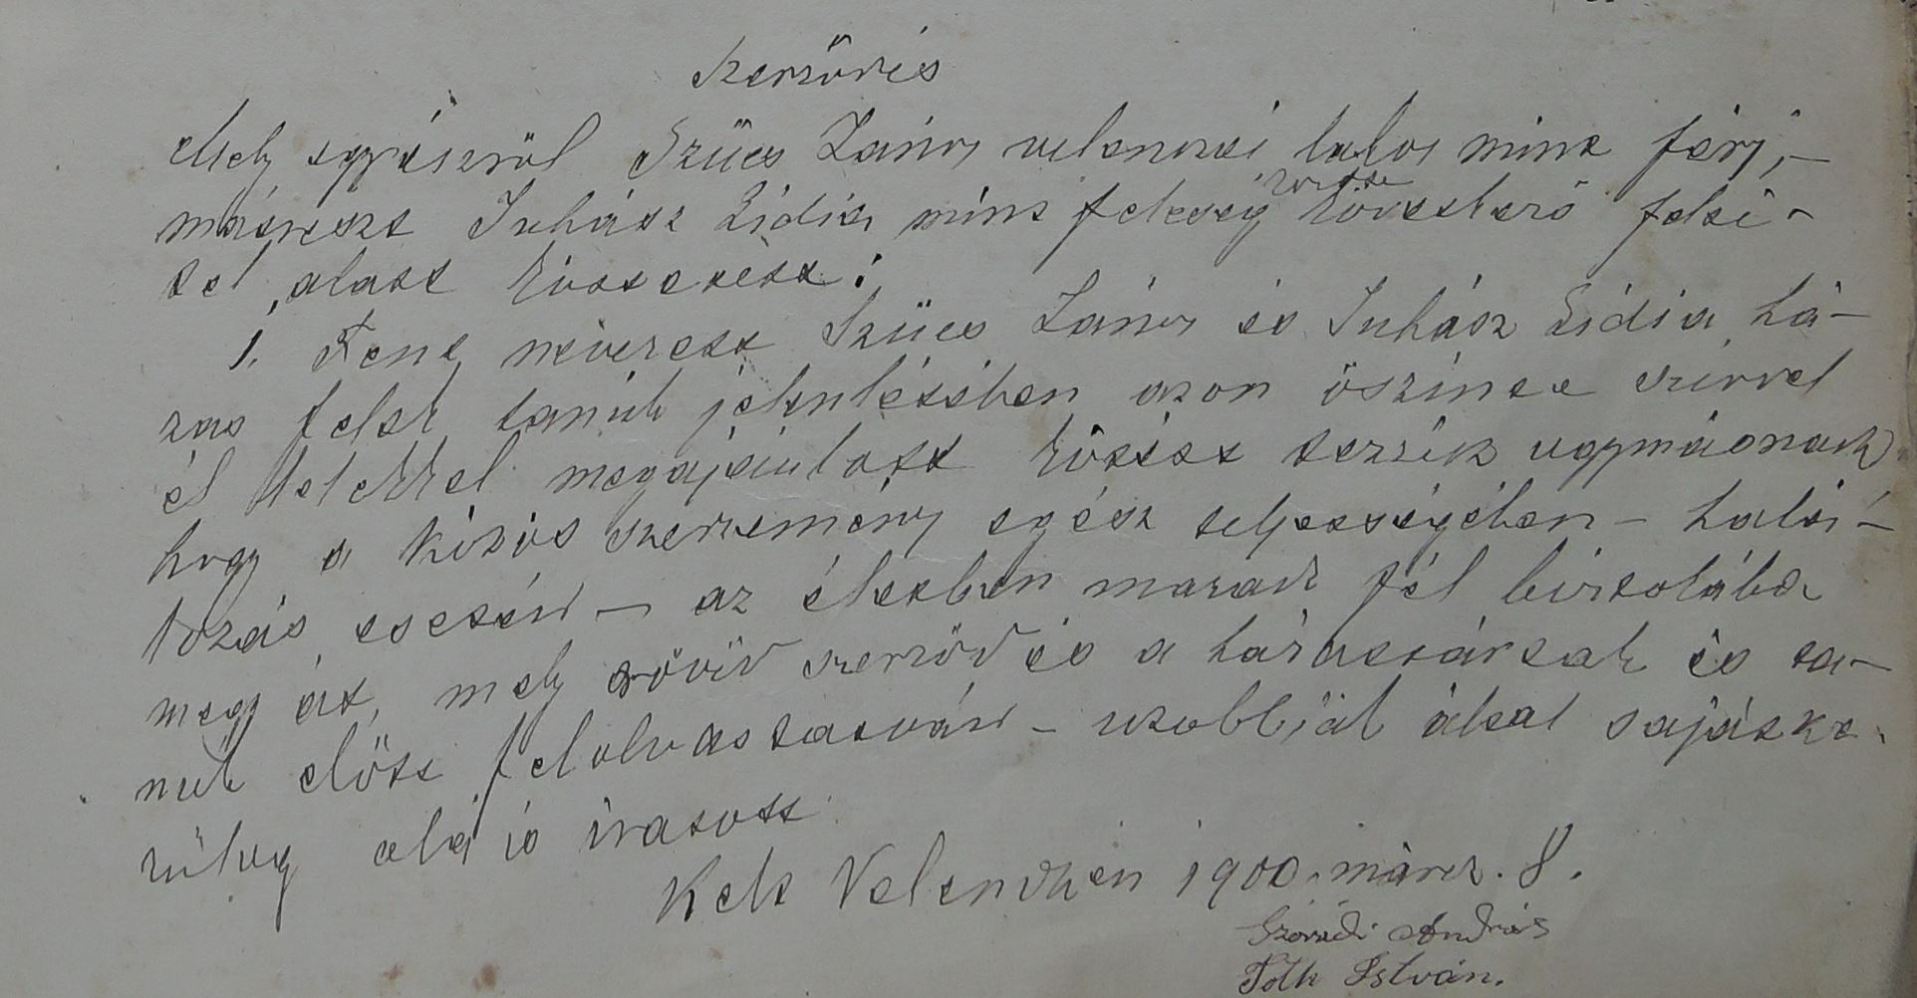 Szerződés
Mely egyrészről Szücs János velenczei lakos mint férj, –
másrészt Juhász Lidia mint feleség között következő felté –
tel alatt köttetett:
1. Fent nevezett Szücs János és Juhász Lidia há –
zas felek tanuk jelenlétében azon öszinte szívvel
és lélekkel megajánlott kötést teszik egymásnak
hogy a közös szerzemény egész teljességében – halá –
lozás esetén – az életben maradt fél birtokába
megy át, mely rövid szerződés a házastársak és ta –
nuk előtt felolvastatván – utobbiak által sajátke –
züleg alá is iratott.
Kelt Velenczén 1900. márcz. 8.
András
Tóth István.